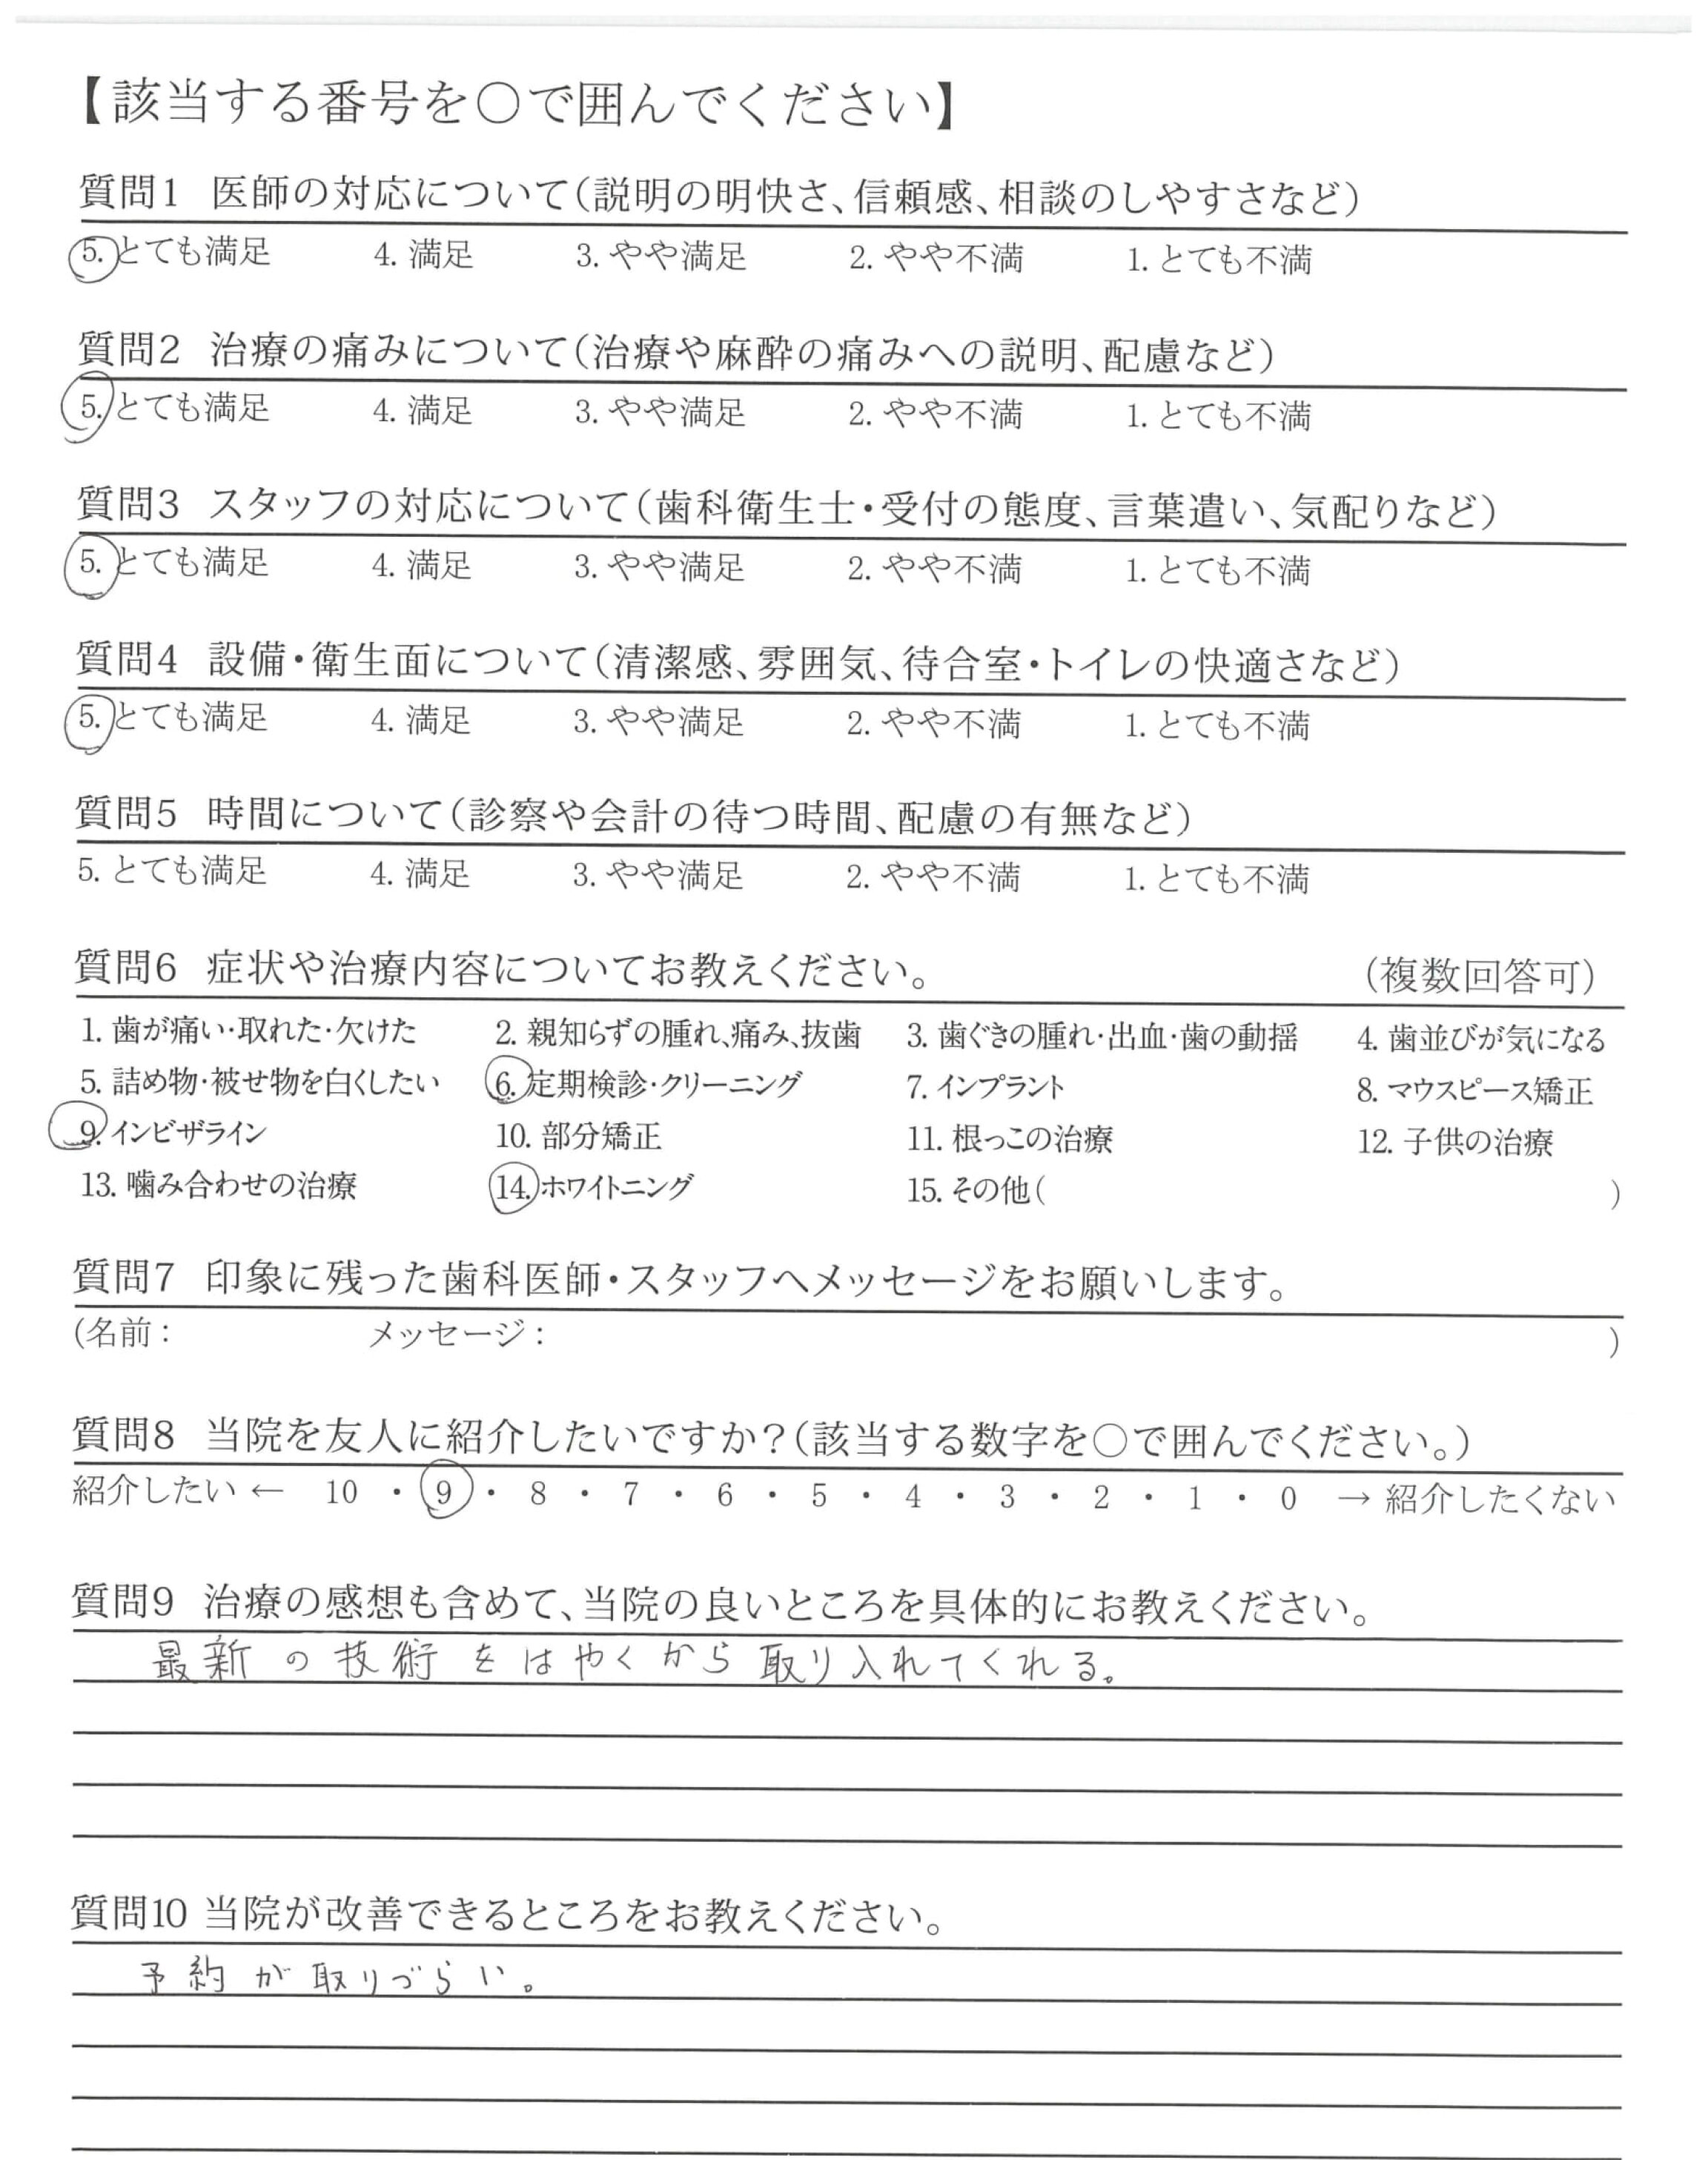 【該当する番号を○で囲んでください】
質問1 医師の対応について(説明の明快さ、信頼感、相談のしやすさなど)
5. とても満足 4. 満足 3. やや満足 2. やや不満 1. とても不満
質問2 治療の痛みについて(治療や麻酔の痛みへの説明、配慮など)
5. とても満足 4. 満足 3. やや満足 2. やや不満 1. とても不満
質問3 スタッフの対応について(歯科衛生士・受付の態度、言葉遣い、気配りなど)
5. とても満足 4. 満足 3. やや満足 2. やや不満 1. とても不満
質問4 設備・衛生面について(清潔感、雰囲気、待合室・トイレの快適さなど)
5. とても満足 4. 満足 3. やや満足 2. やや不満 1. とても不満
質問5 時間について(診察や会計の待つ時間、配慮の有無など)
5. とても満足 4. 満足 3. やや満足 2. やや不満 1. とても不満
質問6 症状や治療内容についてお教えください。 (複数回答可)
1. 歯が痛い・取れた・欠けた 2. 親知らずの腫れ、痛み、抜歯 3. 歯ぐきの腫れ・出血・歯の動揺 4. 歯並びが気になる
5. 詰め物・被せ物を白くしたい 6. 定期検診・クリーニング 7. インプラント 8. マウスピース矯正
9. インビザライン 10. 部分矯正 11. 根っこの治療 12. 子供の治療
13. 噛み合わせの治療 14. ホワイトニング 15. その他( )
質問7 印象に残った歯科医師・スタッフへメッセージをお願いします。
(名前: メッセージ: )
質問8 当院を友人に紹介したいですか?(該当する数字を○で囲んでください。)
紹介したい ← 10 ・ 9 ・ 8 ・ 7 ・ 6 ・ 5 ・ 4 ・ 3 ・ 2 ・ 1 ・ 0 → 紹介したくない
質問9 治療の感想も含めて、当院の良いところを具体的にお教えください。
最新の技術をはやくから取り入れてくれる。
質問10 当院が改善できるところをお教えください。
予約が取りづらい。